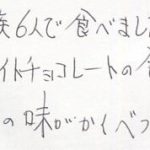 族6人で食べまし
イトチョコレートの
の味がかくべつ